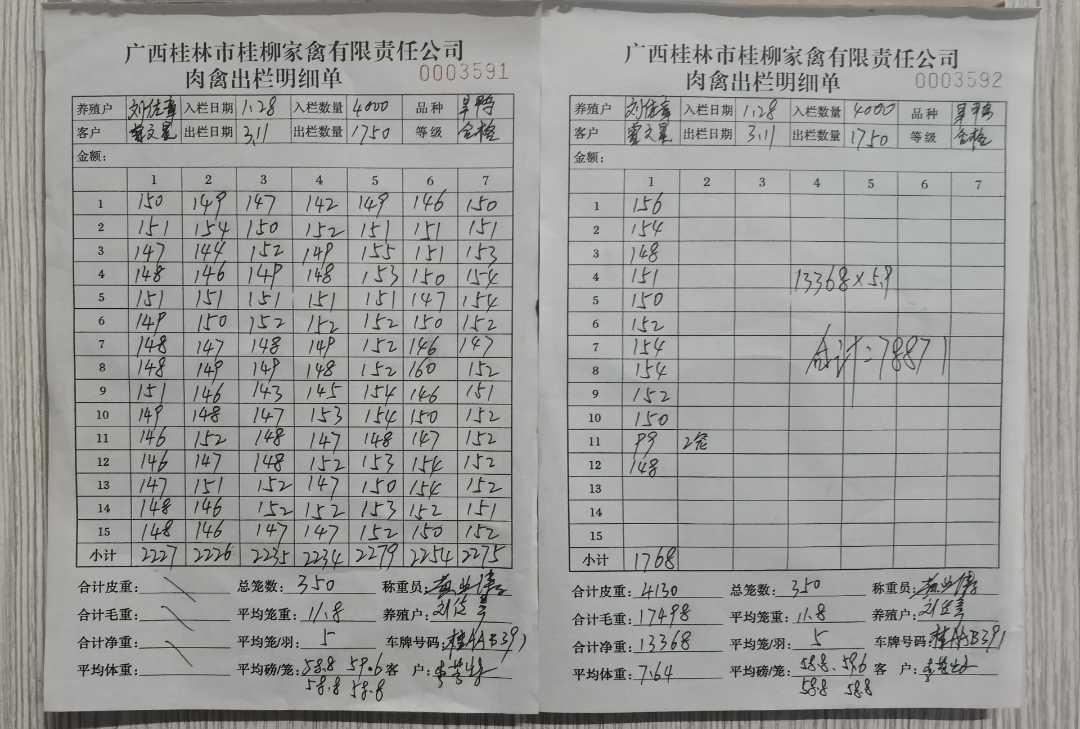 广西桂林市桂柳家禽有限责任公司
肉禽出栏明细单 0003591
养殖户 入栏日期 1.28 入栏数量 4000 品种 旱鸭
客户 出栏日期 3.11 出栏数量 1750 等级 合格
金额:
1 2 3 4 5 6 7
1 150 149 147 142 149 146 150
2 151 154 150 152 151 151 151
3 147 144 152 149 155 151 153
4 148 146 149 148 153 150 154
5 151 151 151 151 151 147 154
6 149 150 152 152 152 150 152
7 148 147 148 149 152 146 147
8 148 149 149 148 152 160 152
9 151 146 143 145 154 146 151
10 149 148 147 153 154 150 152
11 146 152 148 147 148 147 152
12 146 147 148 152 153 154 152
13 147 151 152 147 150 154 152
14 148 146 152 152 153 152 151
15 148 146 147 147 152 150 152
小计 2227 2226 2235 2234 2279 2254 2275
合计皮重: 总笼数: 350 称重员:
合计毛重: 平均笼重: 11.8 养殖户:
合计净重: 平均笼/羽: 5 车牌号码: 桂AAB391
平均体重: 平均磅/笼: 58.8 59.6 客 户:
58.8 58.8
广西桂林市桂柳家禽有限责任公司
肉禽出栏明细单 0003592
养殖户 入栏日期 1.28 入栏数量 4000 品种 旱鸭
客户 出栏日期 3.11 出栏数量 1750 等级 合格
金额:
1 2 3 4 5 6 7
1 156
2 154
3 148
4 151 13368×5.9
5 150
6 152
7 154 合计:78871
8 154
9 152
10 150
11 99 2笼
12 148
13
14
15
小计 1768
合计皮重: 4130 总笼数: 350 称重员:
合计毛重: 17498 平均笼重: 11.8 养殖户:
合计净重: 13368 平均笼/羽: 5 车牌号码: 桂AAB391
平均体重: 7.64 平均磅/笼: 58.8、59.6 客 户:
58.8 58.8